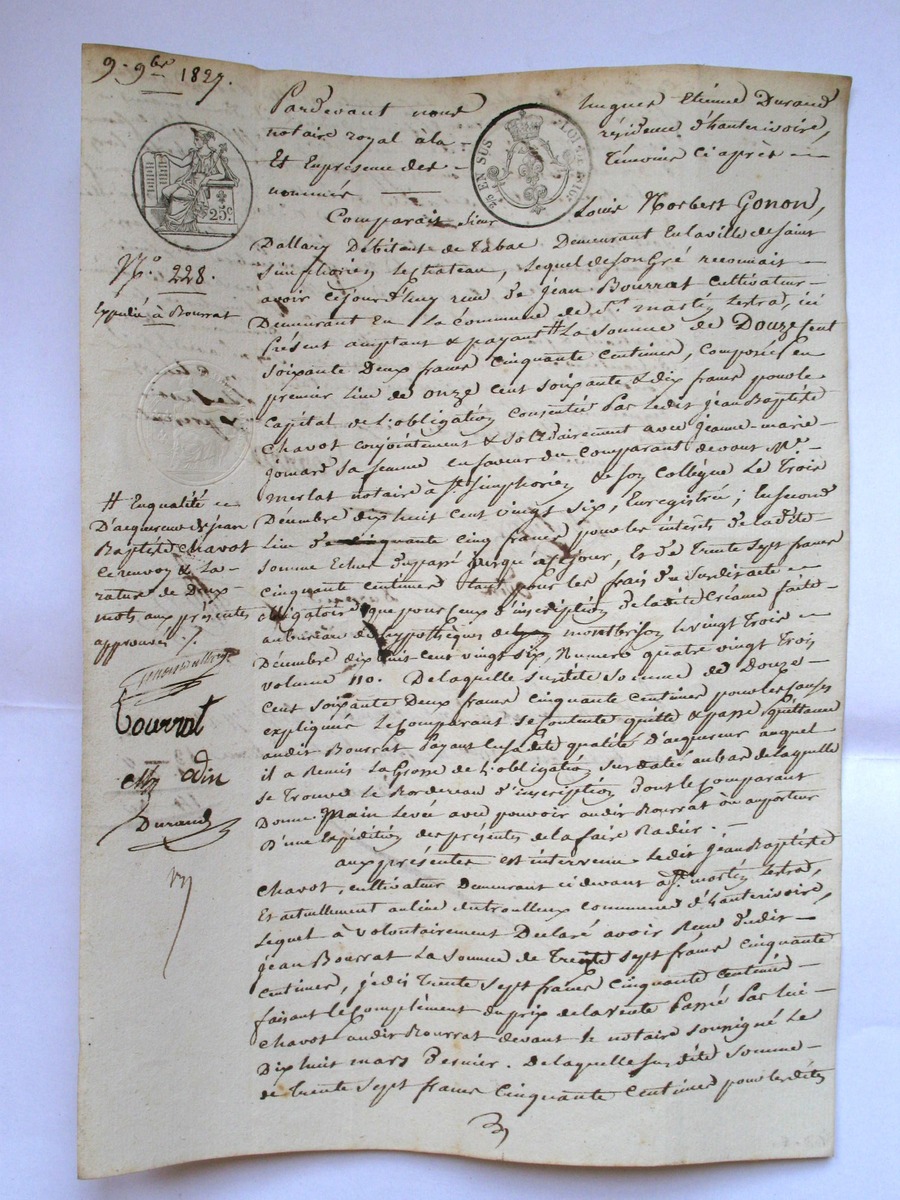 9. 9bre 1827.
Pardevant nous hugues Etienne Durand
notaire royal à la résidence d'hauterivoire,
Et En présence des témoins ci après
nommés
25c
EN SUS
Comparait sieur Louis Norbert Gonon,
Dallary Débitant de tabac Demeurant En la ville de Saint
simphorien le château, lequel de son Gré reconnait
avoir cejourd'huy reçu de jean Bourrat cultivateur
Demeurant En la commune de St. martin lestra, ici
présent acceptant & payant # La somme de Douze cent
soixante Deux francs cinquante centimes, composée en
premier lieu de onze cent soixante & dix francs pour le
capital de l'obligation consentie par ledit jean Baptiste
Chavot conjointement & solidairement avec jeanne-marie
jomard sa femme en faveur du comparant devant Me.
merlat notaire à St. simphorien de son collègue Le Trois
Décembre dix huit cent vingt six, Enregistrée; En second
lieu de cinquante cinq francs pour les intérêts de la dite
somme Echus du passé jusqu'à ce jour, Et de trente sept francs
cinquante centimes tant pour les frais du susdit acte
obligatoire que pour ceux d'inscription de la dite créance faite
au bureau des hypothèques de montbrison le vingt trois
Décembre dix huit cent vingt six, Numero quatre vingt trois
volume 110. De laquelle susdite somme de Douze
cent soixante Deux francs cinquante centimes pour les causes
expliquées Le comparant se contente quitte & passe quittance
audit Bourrat payant en sa dite qualité D'acquereur auquel
il a Remis La Grosse de l'obligation susdatée au bas de laquelle
se trouve le Bordereau d'inscription dont le comparant
Donne Main Levée avec pouvoir audit Bourrat ou au porteur
D'une Expédition des présentes de la faire Radier.
aux présentes est intervenu ledit jean Baptiste
Chavot, cultivateur Demeurant ci devant à St. martin lestra,
Et actuellement au lieu commune d'hauterivoire,
Lequel à volontairement Déclaré avoir Reçu dudit
jean Bourrat La somme de Trente sept francs cinquante
centimes, je dis Trente sept francs cinquante centimes
faisant le complément du prix de la vente passée par lui
Chavot audit Bourrat devant le notaire soussigné Le
Dix huit mars Dernier. De laquelle susdite somme
de Trente sept francs cinquante centimes pour les dites
No. 228.
Expédié à Bourrat
# En qualité
D'acquereur de jean
Baptiste Chavot
ce renvoy & La
rature de Deux
mots aux présentes
approuvés
Bourrat
odin
Durand